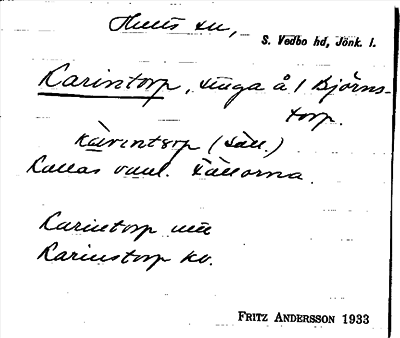 Hults sn,
S. Vedbo hd, Jönk. l.
Karintorp, stuga å 1 Björns-
torp.
kàrintɔrp (säll.)
Kallas vanl. Tällorna.
Karintorp uu
Karinstorp kv.
FRITZ ANDERSSON 1933